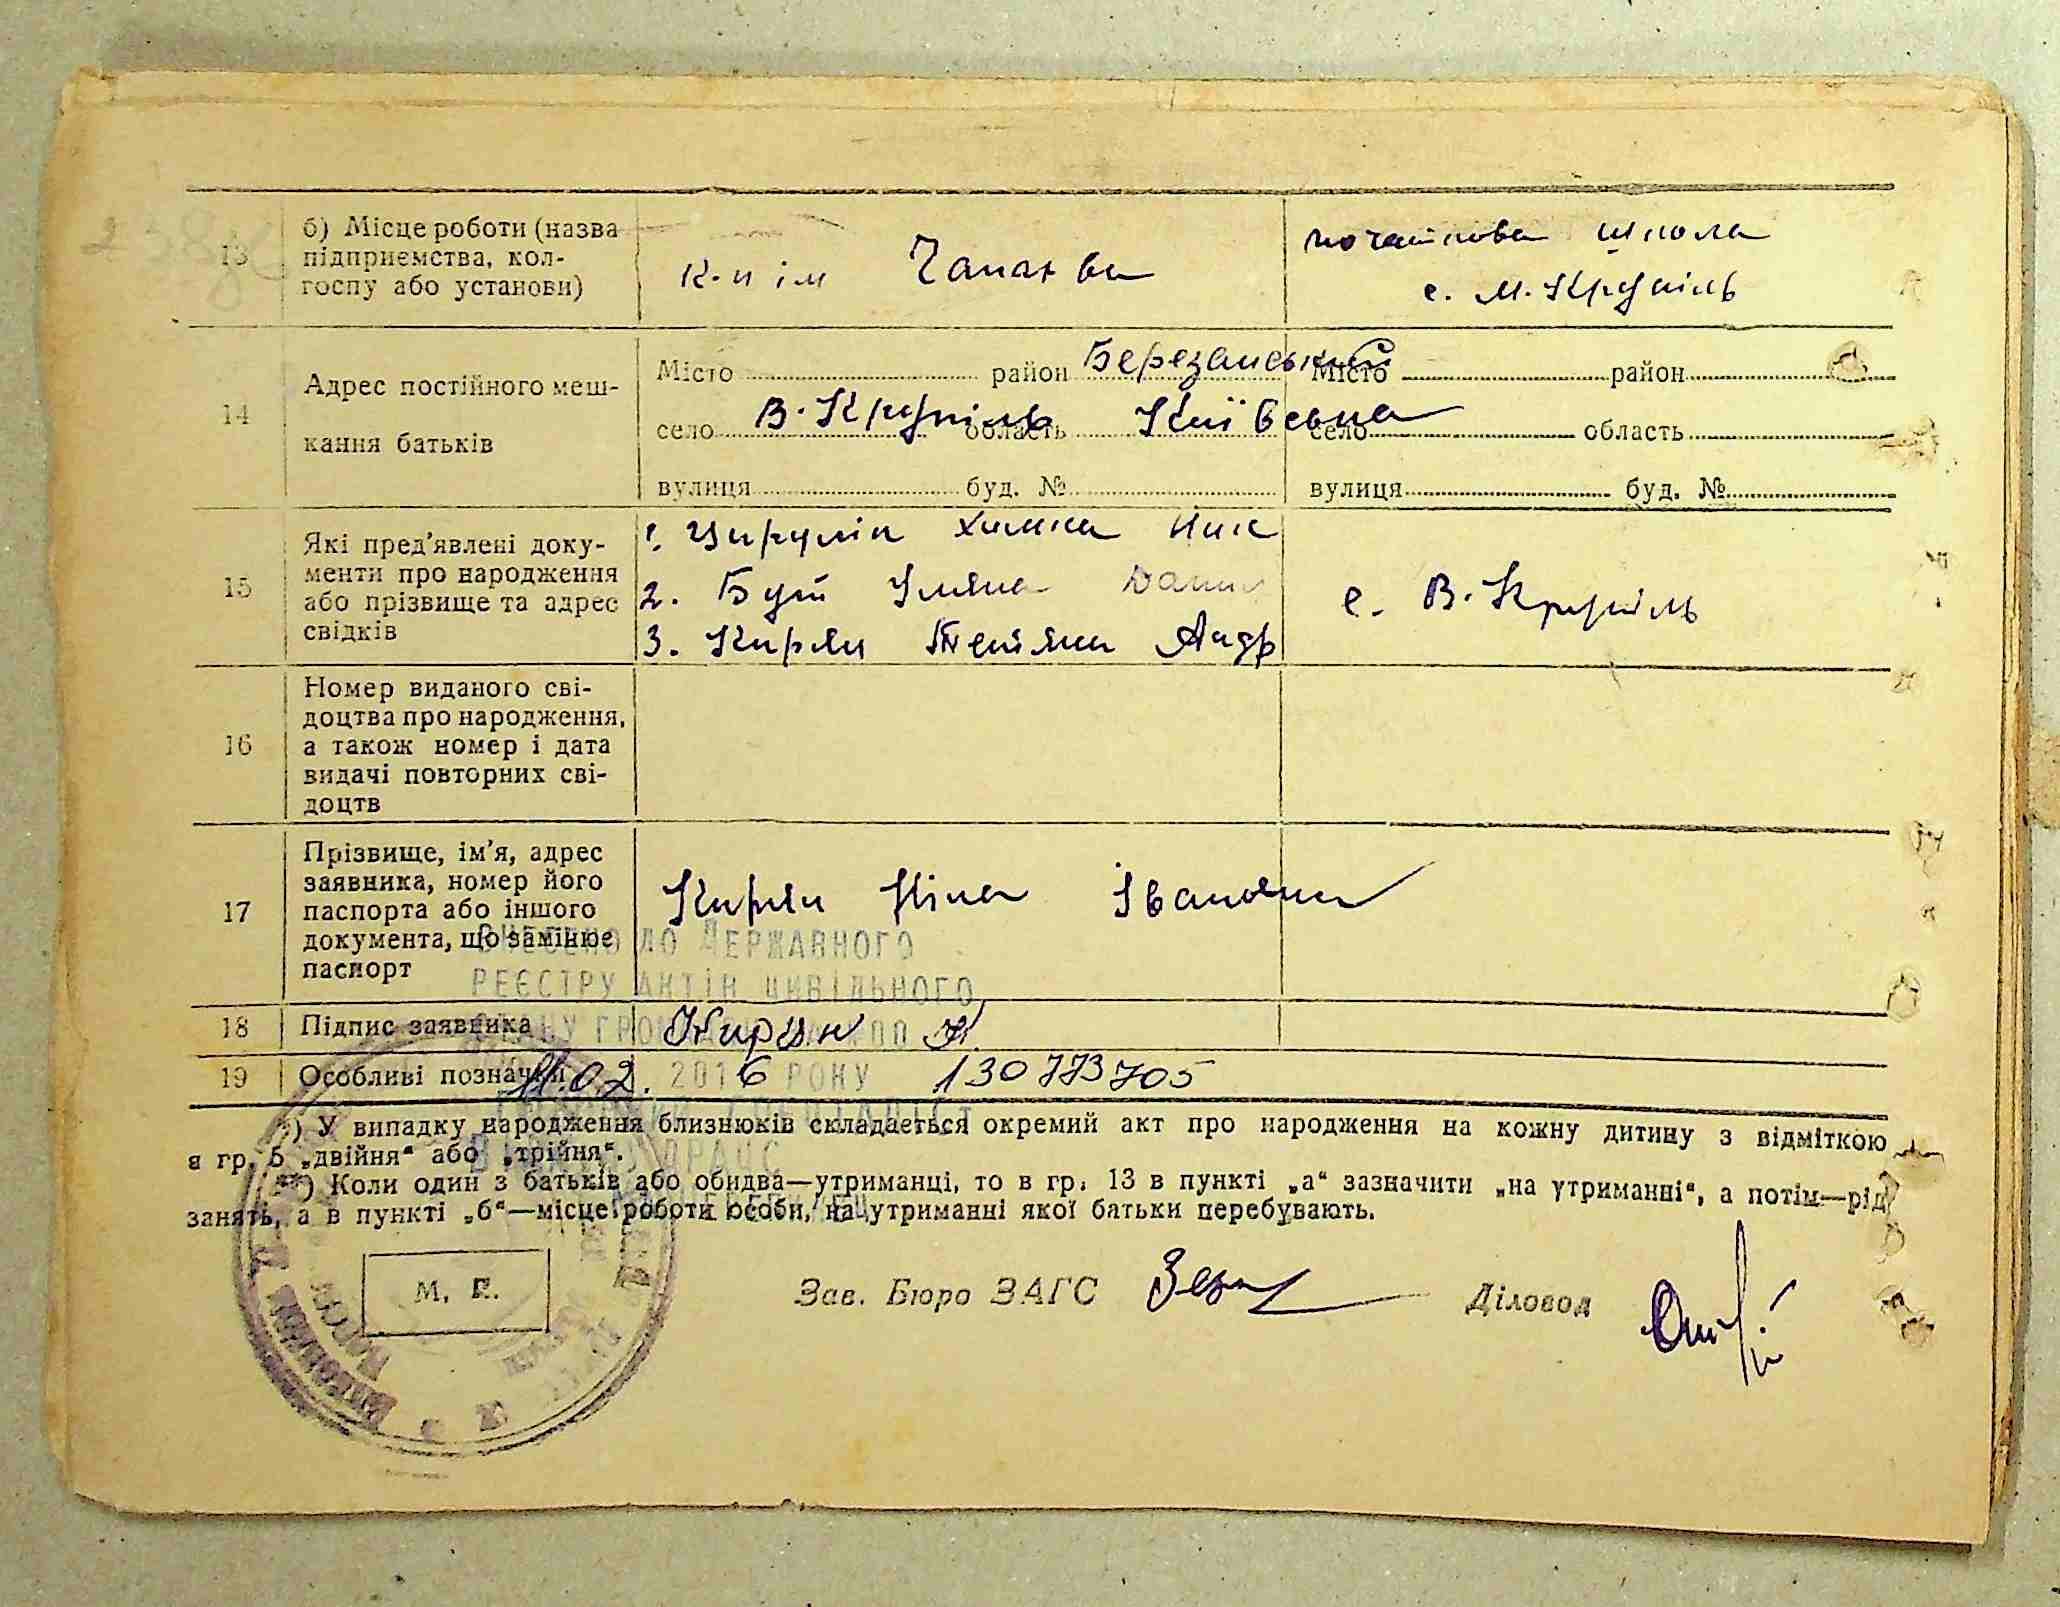 13
б) Місце роботи (назва
підприємства, кол-
госпу або установи)
к-п ім Чапаєва
початкова школа
с. М. Крупіль
14
Адрес постійного меш-
кання батьків
Місто район Березанський
село В. Крупіль область Київська
вулиця буд. №
Місто район
село область
вулиця буд. №
15
Які пред'явлені доку-
менти про народження
або прізвище та адрес
свідків
1. Химка
2. Буй Уляна
3. Кирян Тетяна Андр
с. В. Крупіль
16
Номер виданого сві-
доцтва про народження,
а також номер і дата
видачі повторних сві-
доцтв
17
Прізвище, ім'я, адрес
заявника, номер його
паспорта або іншого
документа, що замінює
паспорт
Кирян Ніна Іванівна
ВНЕСЕНО ДО ДЕРЖАВНОГО
РЕЄСТРУ АКТІВ ЦИВІЛЬНОГО
СТАНУ ГРОМАДЯН
18
Підпис заявника
Кирян Н.
19
Особливі позначки
11.02. 2016 РОКУ 130773705
ГОЛОВНИЙ СПЕЦІАЛІСТ
*) У випадку народження близнюків складається окремий акт про народження на кожну дитину з відміткою
в гр. 5 „двійня“ або „трійня“.
**) Коли один з батьків або обидва—утриманці, то в гр. 13 в пункті „а“ зазначити „на утриманні“, а потім—рід
занять, а в пункті „б“—місце роботи особи, на утриманні якої батьки перебувають.
М. П.
Зав. Бюро ЗАГС
Діловод